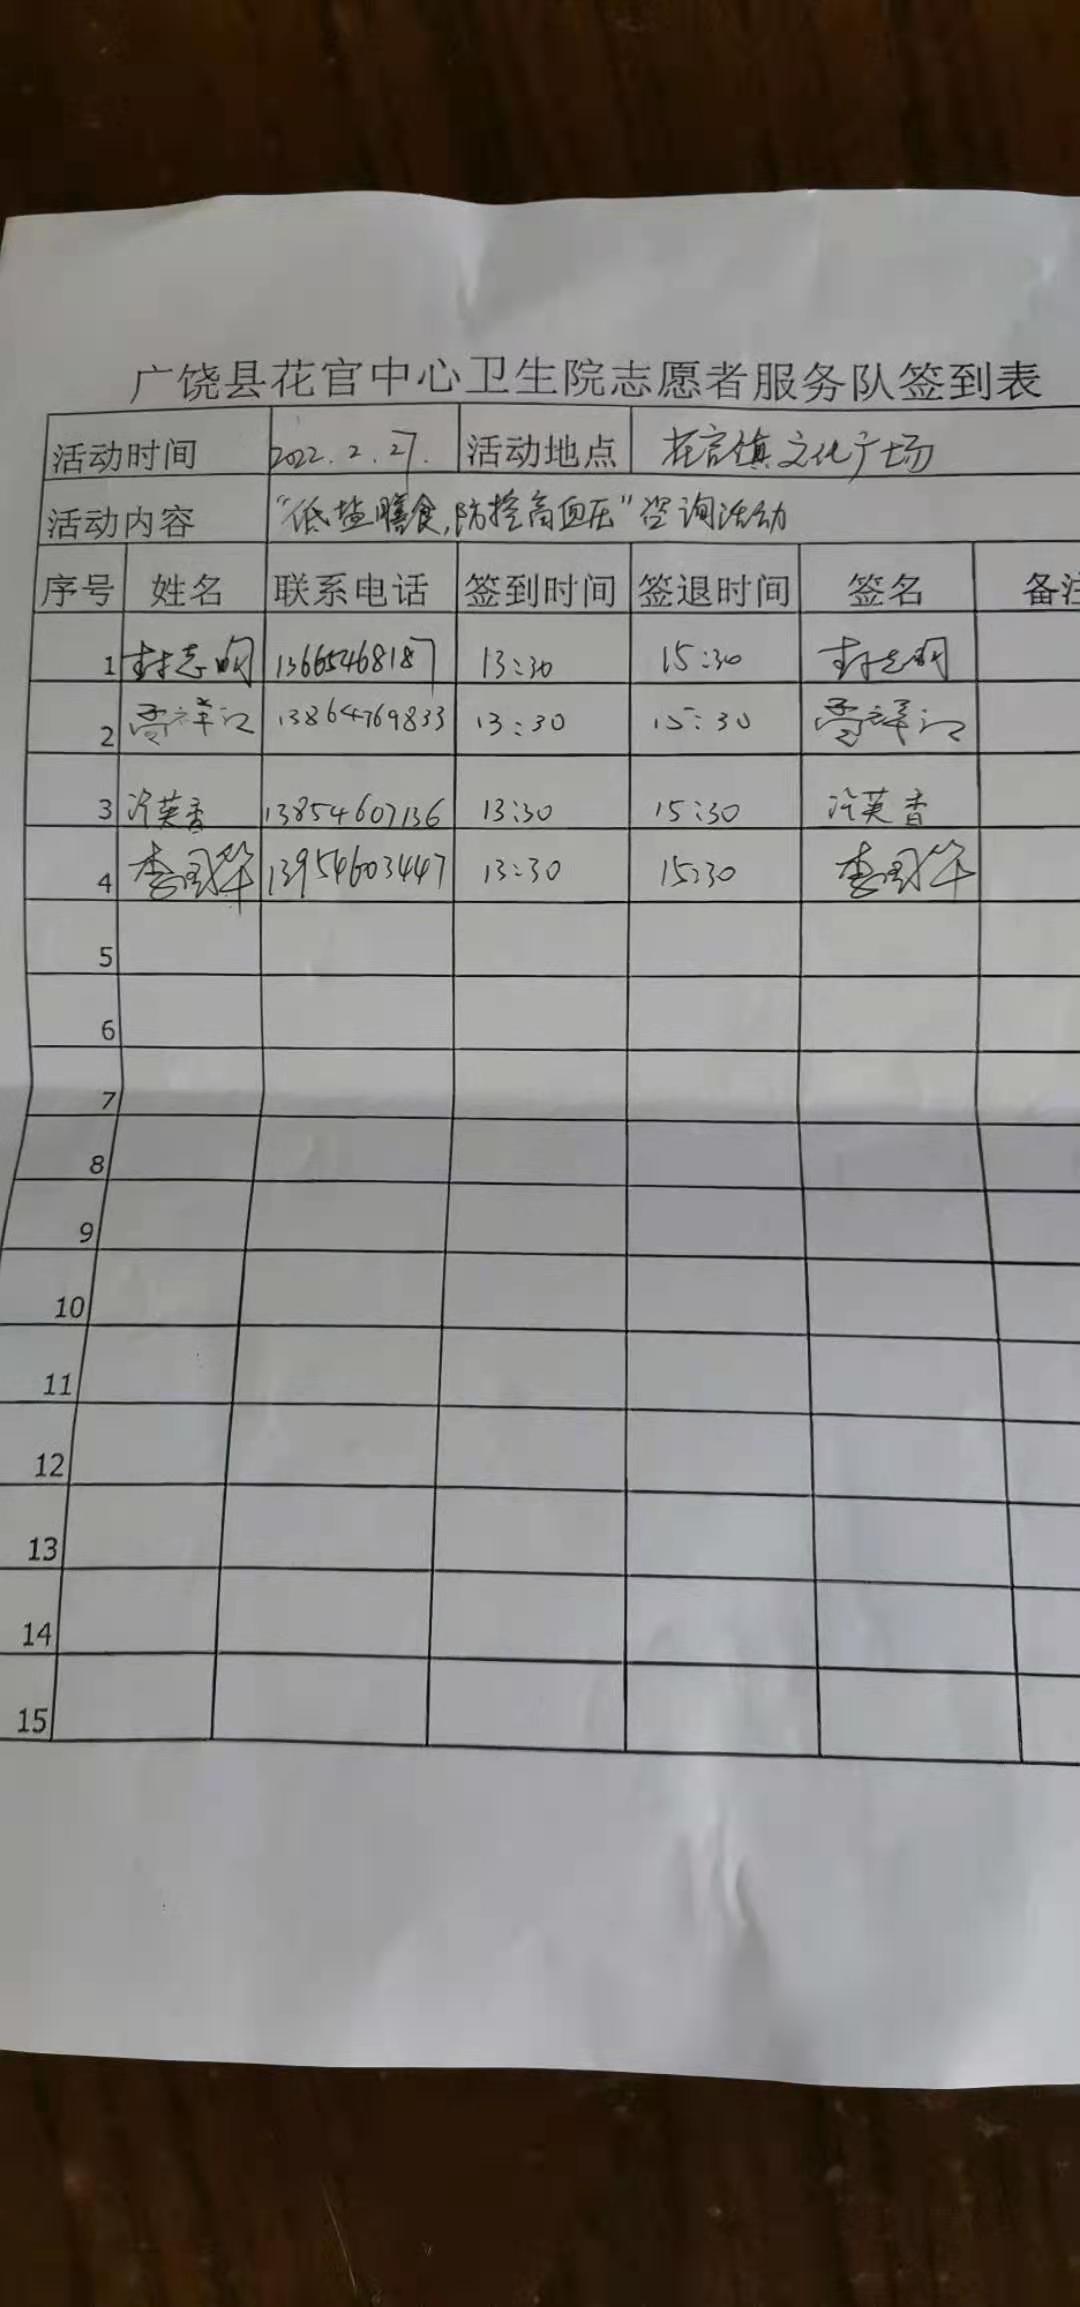 广饶县花官中心卫生院志愿者服务队签到表
活动时间 2022.2.27. 活动地点 花官镇文化广场
活动内容 "低盐膳食,防控高血压"咨询活动
序号 姓名 联系电话 签到时间 签退时间 签名 备注
1 封志明 13665468187 13:30 15:30 封志明
2 贾祥江 13864769833 13:30 15:30 贾祥江
3 冷英香 13854607136 13:30 15:30 冷英香
4 李国华 13954603447 13:30 15:30 李国华
5
6
7
8
9
10
11
12
13
14
15